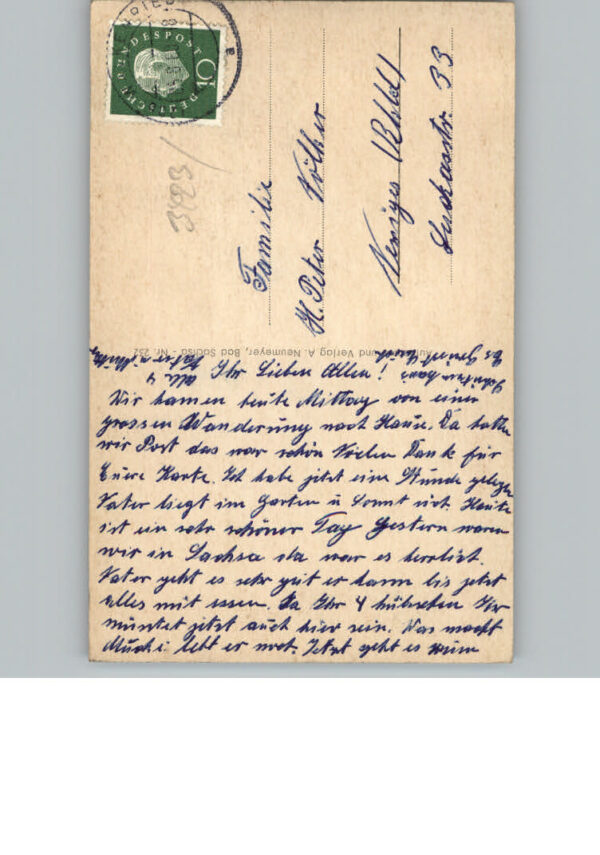 DEUTSCHE BUNDESPOST
10
3423
Familie
H. Peter Völker
Neviges (Rhld)
Lukasstr. 33
und Verlag A. Neumeyer, Bad Sachsa - Nr. 252
Ihr Lieben Allen!
Wir kamen heute Mittag von einer
grossen Wanderung nach Hause. Da hatten
wir Post das war schön Vielen Dank für
Euere Karte. Ich habe jetzt eine Stunde gelegen
Vater liegt im Garten u sonnt sich. Heute
ist ein sehr schöner Tag Gestern waren
wir in Sachsa da war es herrlich.
Vater geht es sehr gut er kann bis jetzt
alles mit essen. Ja Ihr 4 hübschen Ihr
müsstet jetzt auch hier sein. Was macht
Muchi lebt er noch. Jetzt geht es zum
alle 4
Vater u Mutter